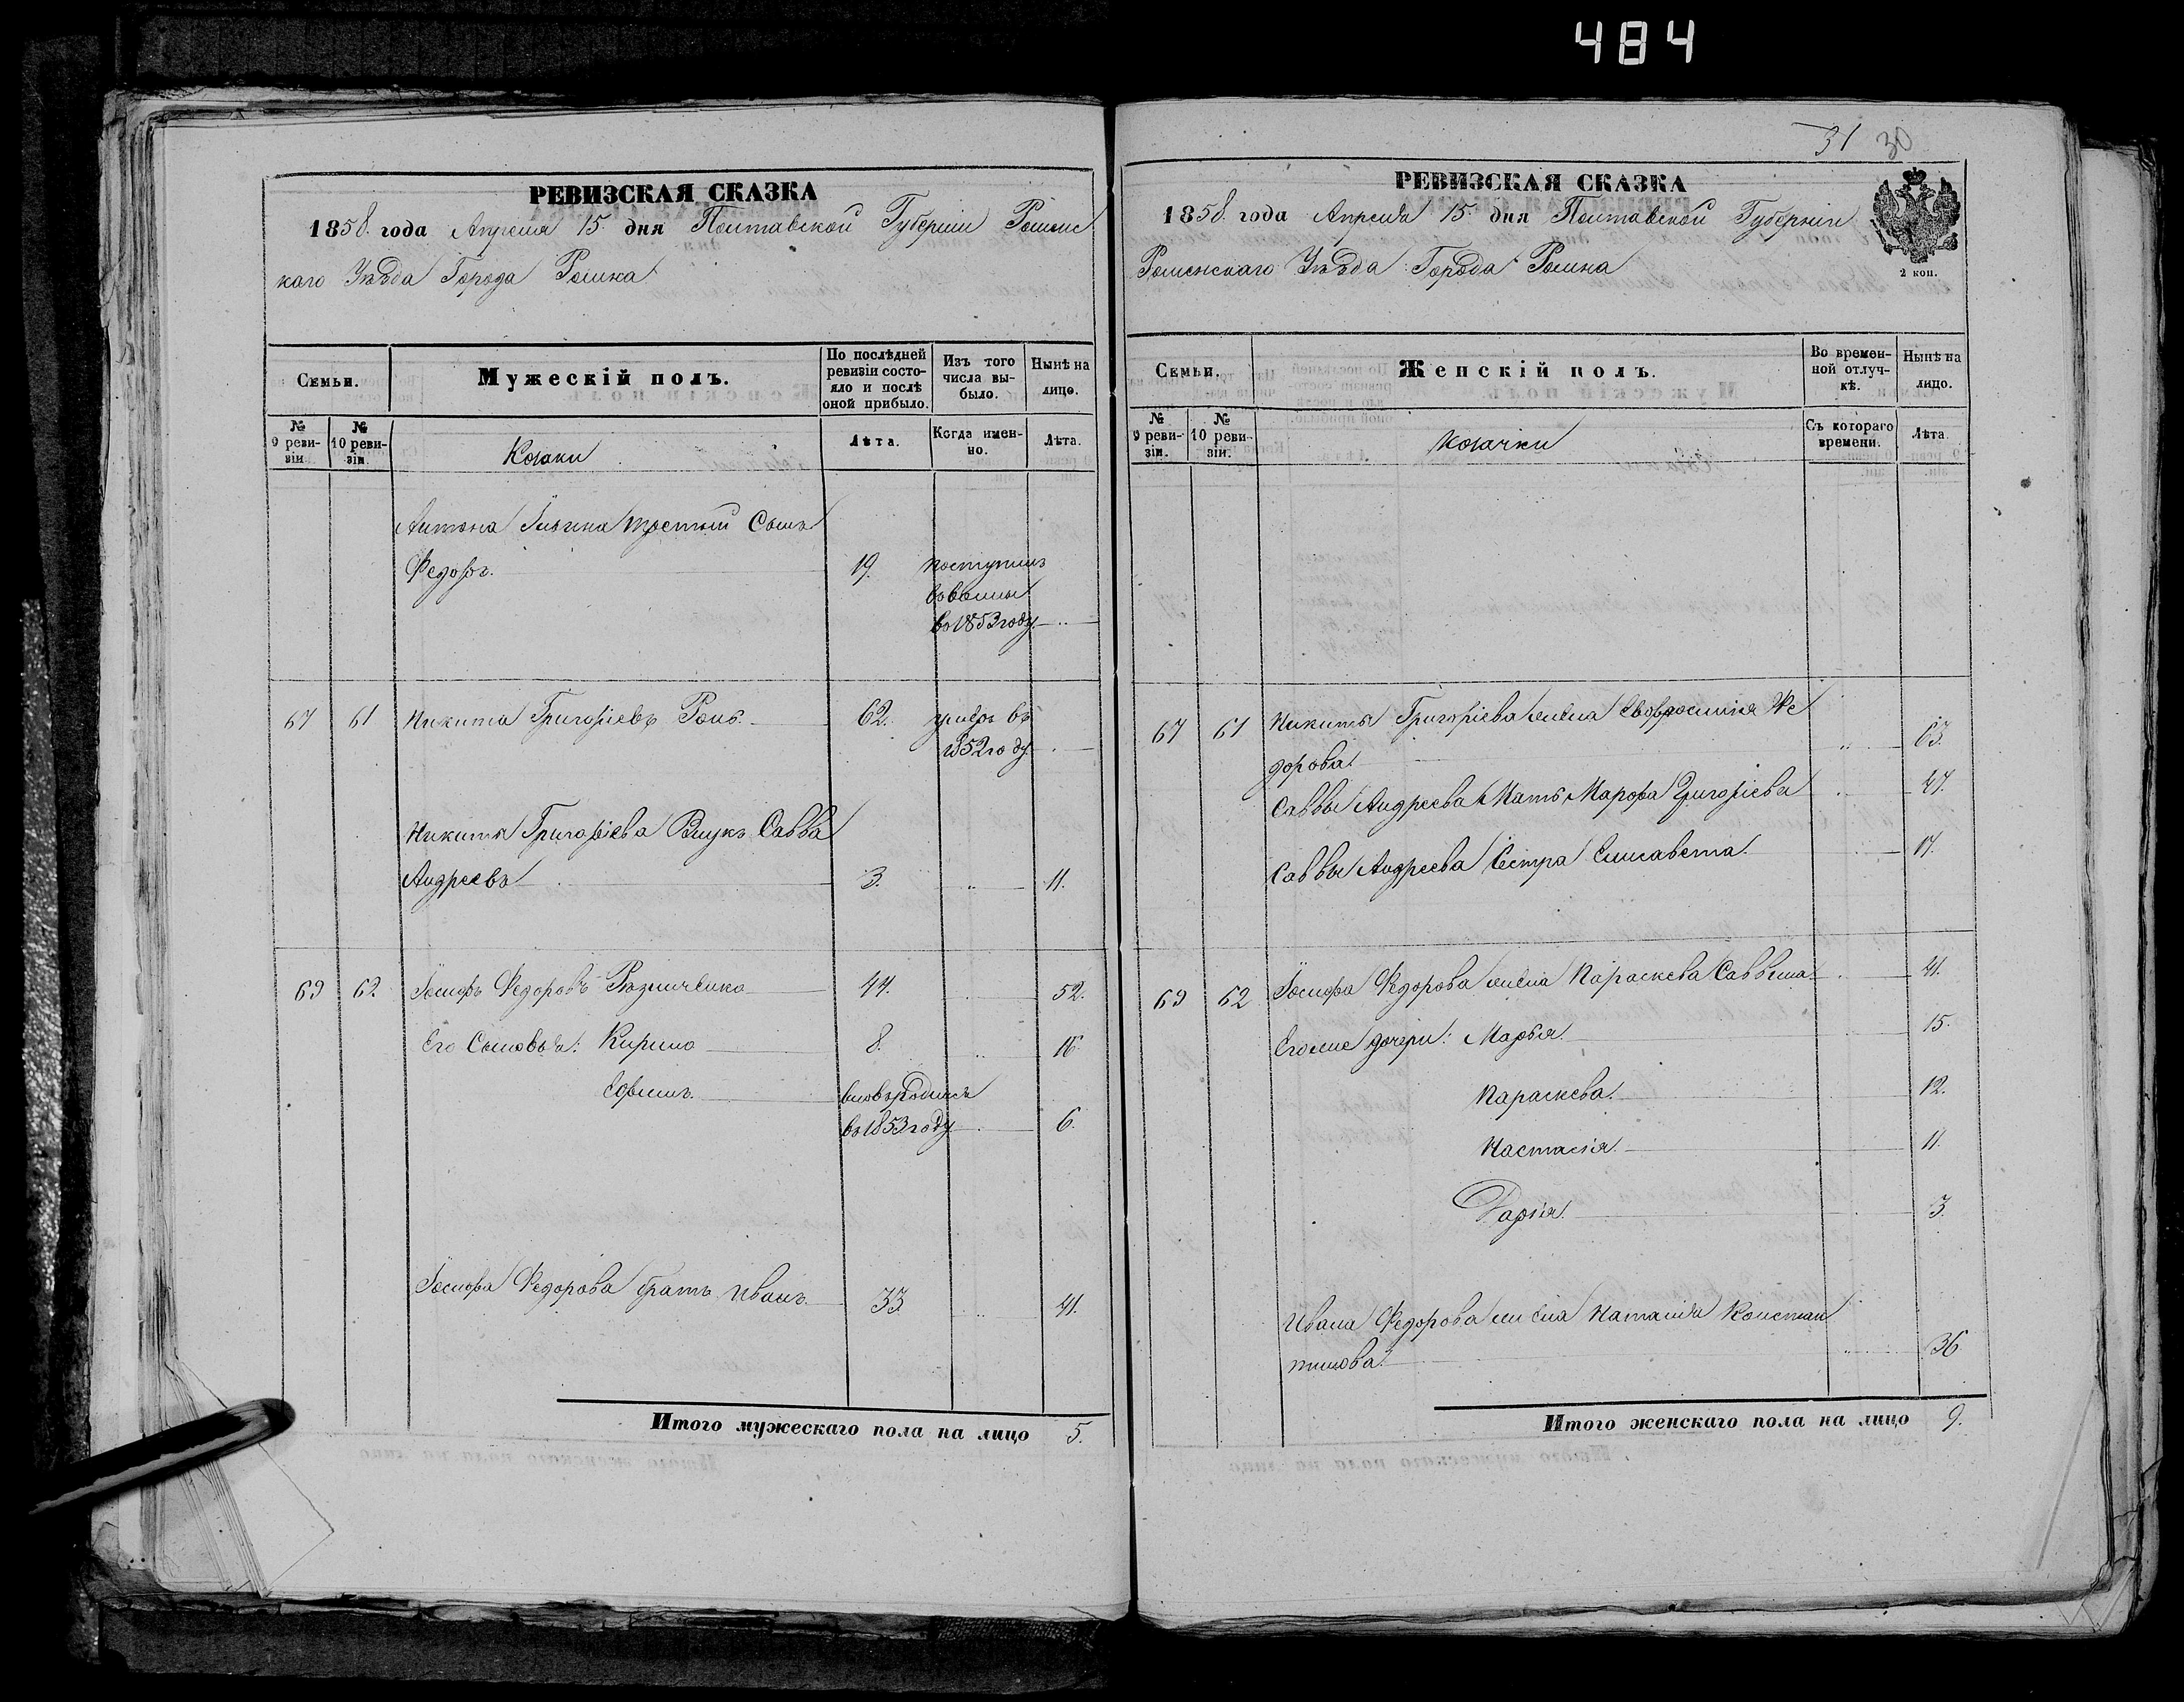 484
РЕВИЗСКАЯ СКАЗКА
1858. года Апреля 15. дня Полтавской Губерніи Роменс
каго Уѣзда Города Ромна
Семьи.
Мужескій полъ.
По послѣдней ревизіи состояло и послѣ оной прибыло.
Изъ того числа выбыло.
Нынѣ на лицо.
№ 9 ревизіи.
№ 10 ревизіи.
Козаки
Лѣта.
Когда именно.
Лѣта.
Антона Ильина третий Сынъ
Федоръ. 19. поступилъ
въ 1853 году „
67 61 Никита Григорьевъ 62. умеръ въ
1852 году „
Никиты Григорьева Внукъ Савва
Андреевъ 3. „ 11.
69 62. Іосифъ Федоровъ 44. „ 52.
Его Сыновья: Кирило 8. „ 16.
Ефимъ. вновь родился
въ 1853 году „ 6.
Іосифа Федорова братъ Иванъ. 33. „ 41.
Итого мужескаго пола на лицо 5.
31 30
РЕВИЗСКАЯ СКАЗКА
1858. года Апреля 15. дня Полтавской Губерніи
Роменскаго Уѣзда Города Ромна
2 коп.
Семьи.
Женскій полъ.
Во временной отлучкѣ.
Нынѣ на лицо.
№ 9 ревизіи.
№ 10 ревизіи.
Козачки
Съ котораго времени.
Лѣта.
67 61 Никиты Григорьева жена Ѳе
дорова „ 63.
Саввы Андреева Мать Марфа Григорьева „ 47.
Саввы Андреева Сестра Елисавета. „ 17.
69 62 Іосифа Федорова жена Параскева Саввина „ 41.
Его же дочери: Марья. „ 15.
Параскева. „ 12.
Настасія. „ 11.
Дарія. „ 3.
Ивана Федорова жена Наталія Констан
тинова. „ 36.
Итого женскаго пола на лицо 9.